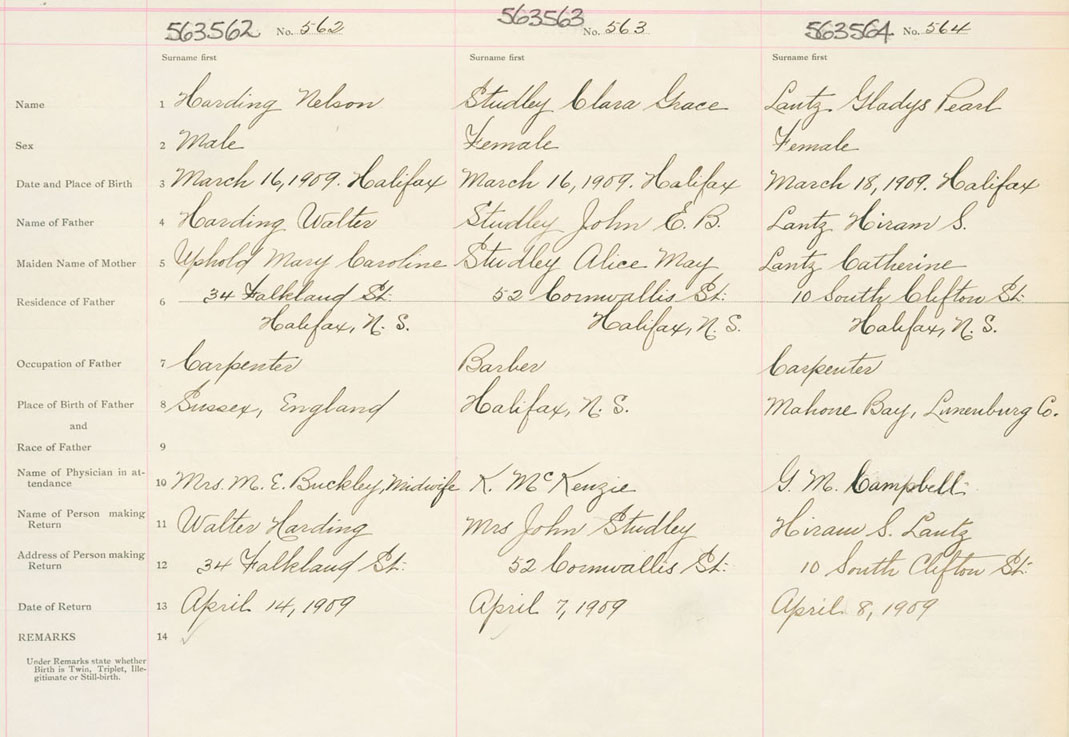 563562 No. 562 563563 No. 563 563564 No. 564
Surname first Surname first Surname first
Name 1 Harding Nelson Studley Clara Grace Lantz Gladys Pearl
Sex 2 Male Female Female
Date and Place of Birth 3 March 16, 1909. Halifax March 16, 1909. Halifax March 18, 1909. Halifax
Name of Father 4 Harding Walter Studley John E. B. Lantz Hiram S.
Maiden Name of Mother 5 Uphold Mary Caroline Studley Alice May Lantz Catherine
Residence of Father 6 34 Falkland St. 52 Cornwallis St. 10 South Clifton St.
Halifax, N. S. Halifax, N. S. Halifax, N. S.
Occupation of Father 7 Carpenter Barber Carpenter
Place of Birth of Father 8 Sussex, England Halifax, N. S. Mahone Bay, Lunenburg Co.
and
Race of Father 9
Name of Physician in at-
tendance 10 Mrs. M. E. Buckley, Midwife K. McKenzie G. M. Campbell
Name of Person making
Return 11 Walter Harding Mrs John Studley Hiram S. Lantz
Address of Person making
Return 12 34 Falkland St. 52 Cornwallis St. 10 South Clifton St.
Date of Return 13 April 14, 1909 April 7, 1909 April 8, 1909
REMARKS 14
Under Remarks state whether
Birth is Twin, Triplet, Ille-
gitimate or Still-birth.